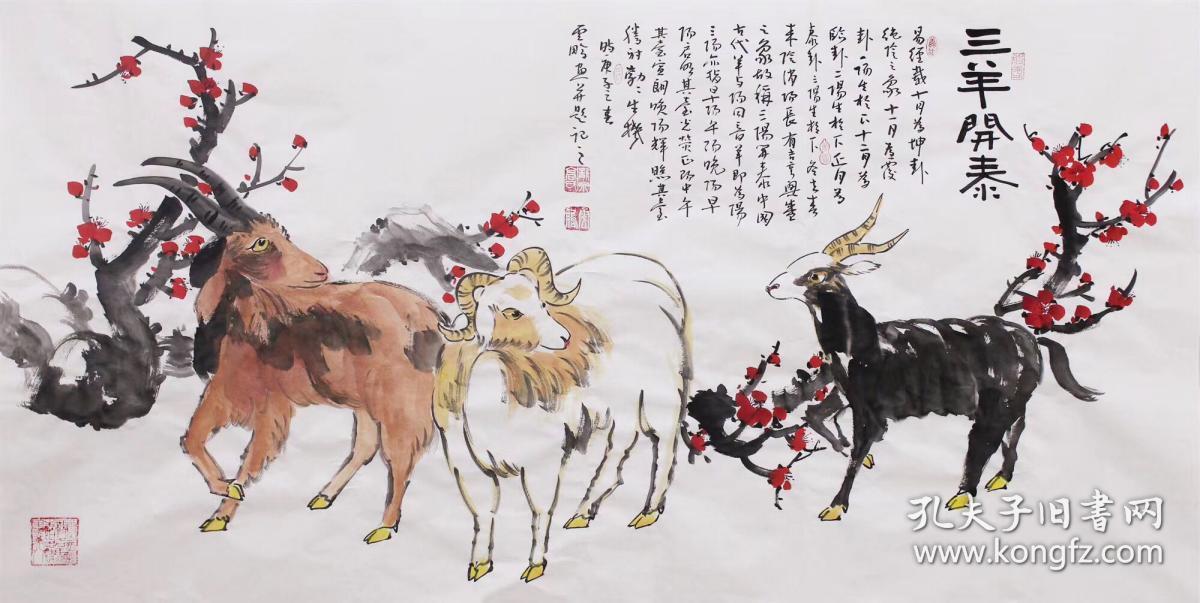 三羊開泰
易經載十月為坤卦
純陰之象十一月為復
卦一陽生於下十二月為
臨卦二陽生於下正月為
泰卦三陽生於下冬去春
来陰消陽長有吉亨興盛
之象故稱三陽開泰中國
古代羊与陽同音羊即為陽
三陽亦指早陽午陽晚陽早
陽启明其台光熒正陽中午
其台宣朗晚陽輝照其台
騰射勃々生機
時庚子之春
畫并題記之
孔夫子旧书网
www.kongfz.com